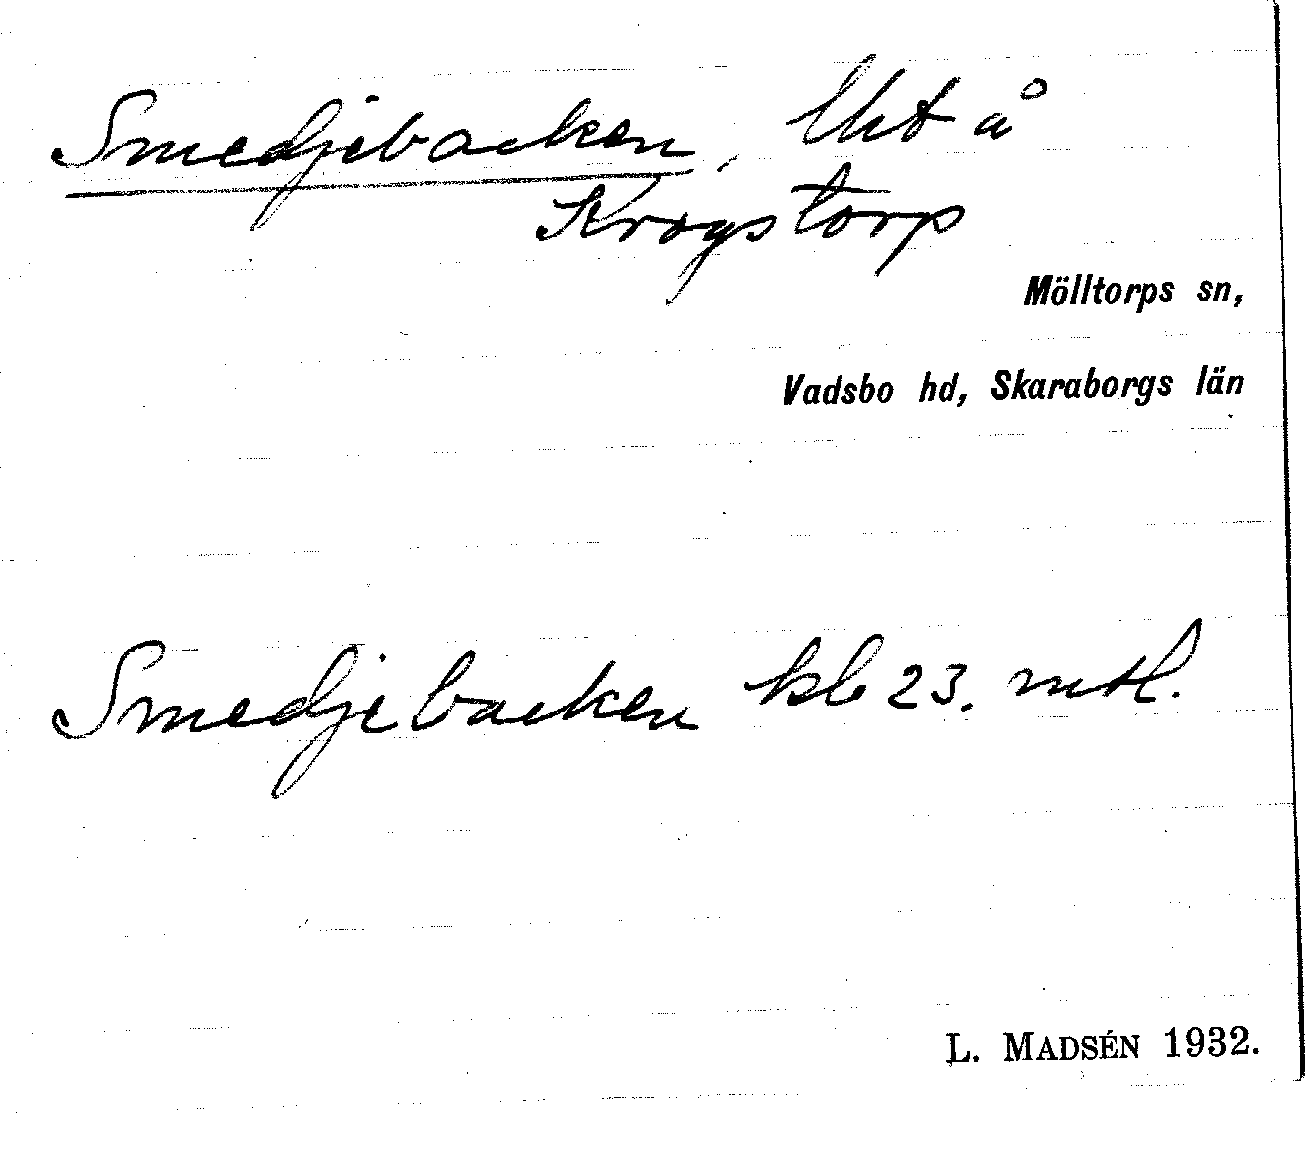 Smedjebacken, lht å
Krogstorp
Mölltorps sn,
Vadsbo hd, Skaraborgs län
Smedjebacken kb 23. mtl.
L. MADSÉN 1932.